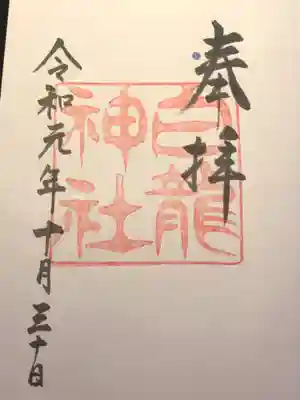 奉拝
白龍
神社
令和元年十月三十日